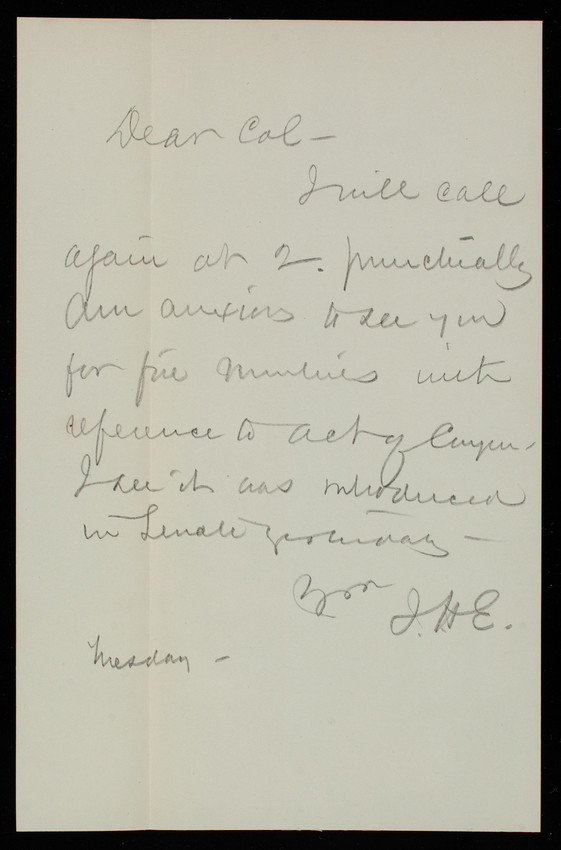 Dear Col -
I will call
again at 2. punctually
Am anxious to see you
for five minutes with
reference to act of
I see it was introduced
in Senate yesterday -
Yrs
J.H.E.
Tuesday -